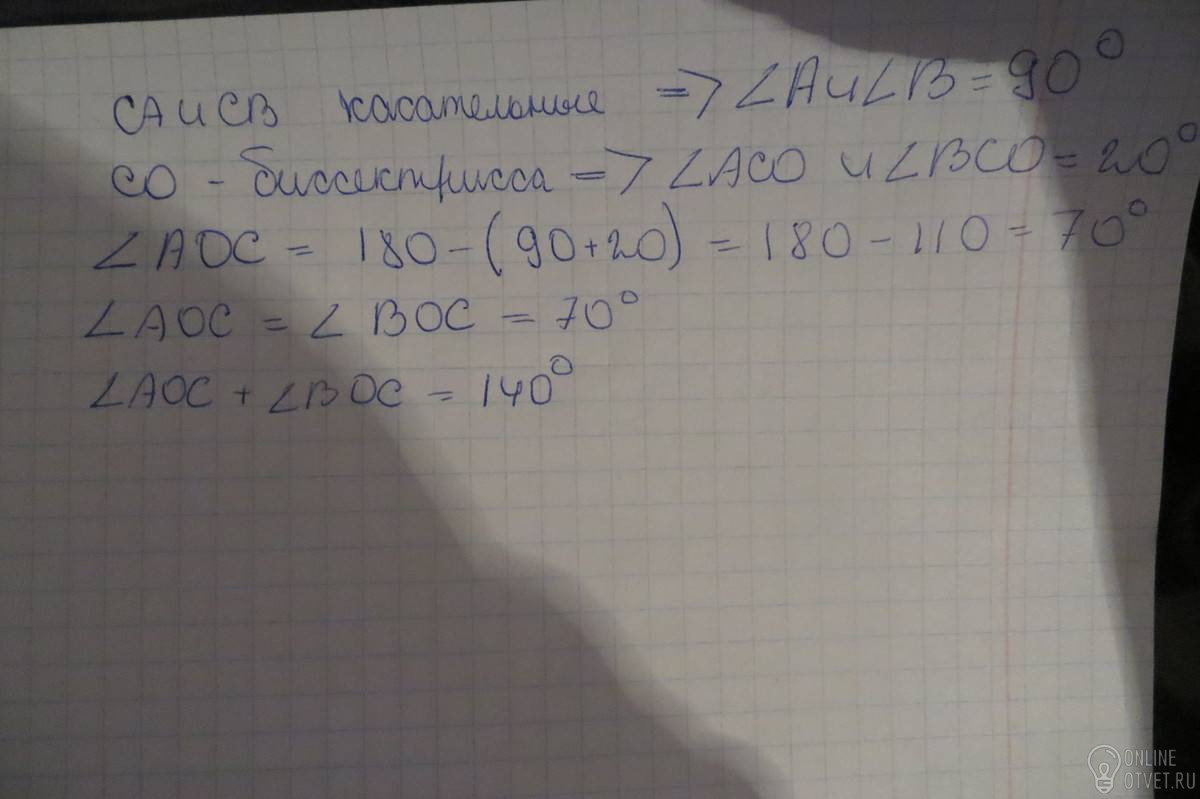 CA и CB касательные => ∠A и ∠B = 90°
CO - биссектрисса => ∠ACO и ∠BCO = 20°
∠AOC = 180 - (90+20) = 180 - 110 = 70°
∠AOC = ∠BOC = 70°
∠AOC + ∠BOC = 140°
ONLINE
OTVET.RU